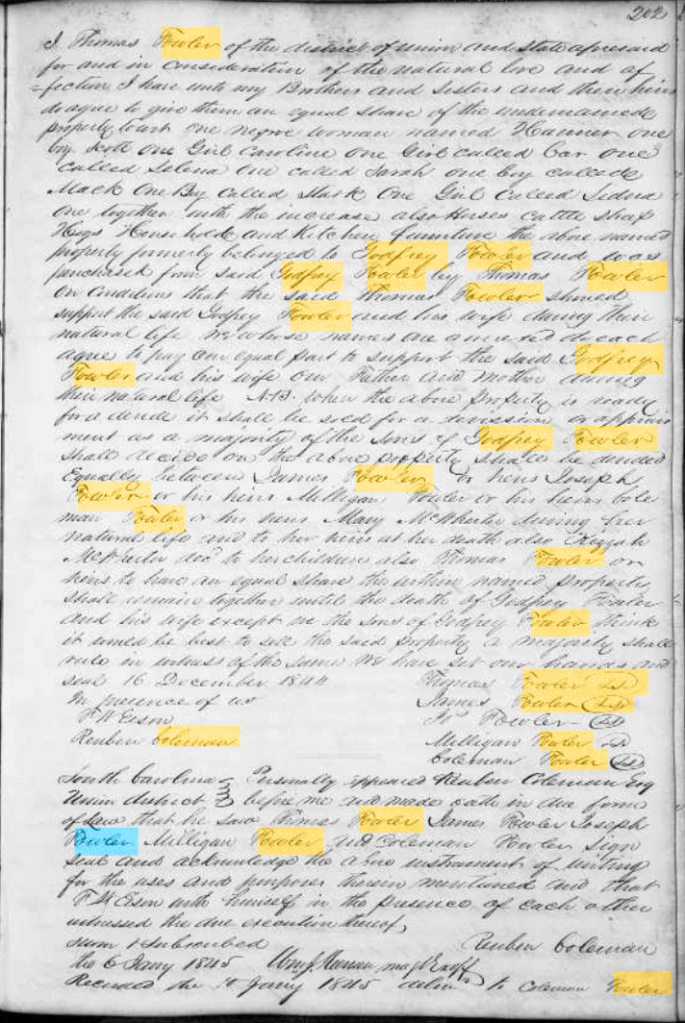 202
I Thomas Fowler of the district of union and state aforesaid
for and in consideration of the natural love and af
=fection I have unto my Brothers and Sisters and their heirs
do agree to give them an equal share of the undernamed
property to wit one negro woman named Hanner one
boy Scott one Girl Caroline one Girl called Car one
called Selena one called Sarah one boy called
Mack One Boy Called Mark One Girl Culeed
one together with the increase also Horses cattle sheap
Hogs Household and Kitchen furniture the above named
property formerly belonged to Godfrey Fowler and was
purchased from said Godfrey Fowler by Thomas Fowler
on conditions that the said Thomas Fowler should
support the said Godfrey Fowler and his wife during their
natural life we whose names are annexed do each
agree to pay our equal part to support the said Godfrey
Fowler and his wife our Father and Mother during
their natural life N.B. when the above property is ready
for a devide it shall be sold for a division or appoint
ment as a majority of the sons of Godfrey Fowler
shall decide on the above property shall be devided
Equally between James Fowler or heirs Joseph
Fowler or his heirs Milligan Fowler or his heirs Cole
man Fowler or his heirs Mary McWherter during her
natural life and to her heirs at her death also Keziah
McWherter decd to her children also Thomas Fowler or
heirs to have an equal share the within named property
shall remain together until the death of Godfrey Fowler
and his wife except we the sons of Godfrey Fowler think
it would be best to sell the said property a majority shall
rule in witness of the same We have set our hands and
seal 16 December 1844 Thomas Fowler LS
In presence of us James Fowler LS
F W Eison Jos Fowler LS
Reuben Coleman Milligan Fowler LS
Coleman Fowler LS
South Carolina Personally appeared Reuben Coleman Esq
Union district before me and made oath in due form
of Law that he saw Thomas Fowler James Fowler Joseph
Fowler Milligan Fowler and Coleman Fowler sign
seal and acknowledge the above instrument of writing
for the uses and purposes therein mentioned and that
F W Eison with himself in the presence of each other
witnessed the due execution thereof
sworn & subscribed Reuben Coleman
the 6 Jany 1845 Wm J Keenan
Recorded the Jany 1845 to Coleman Fowler